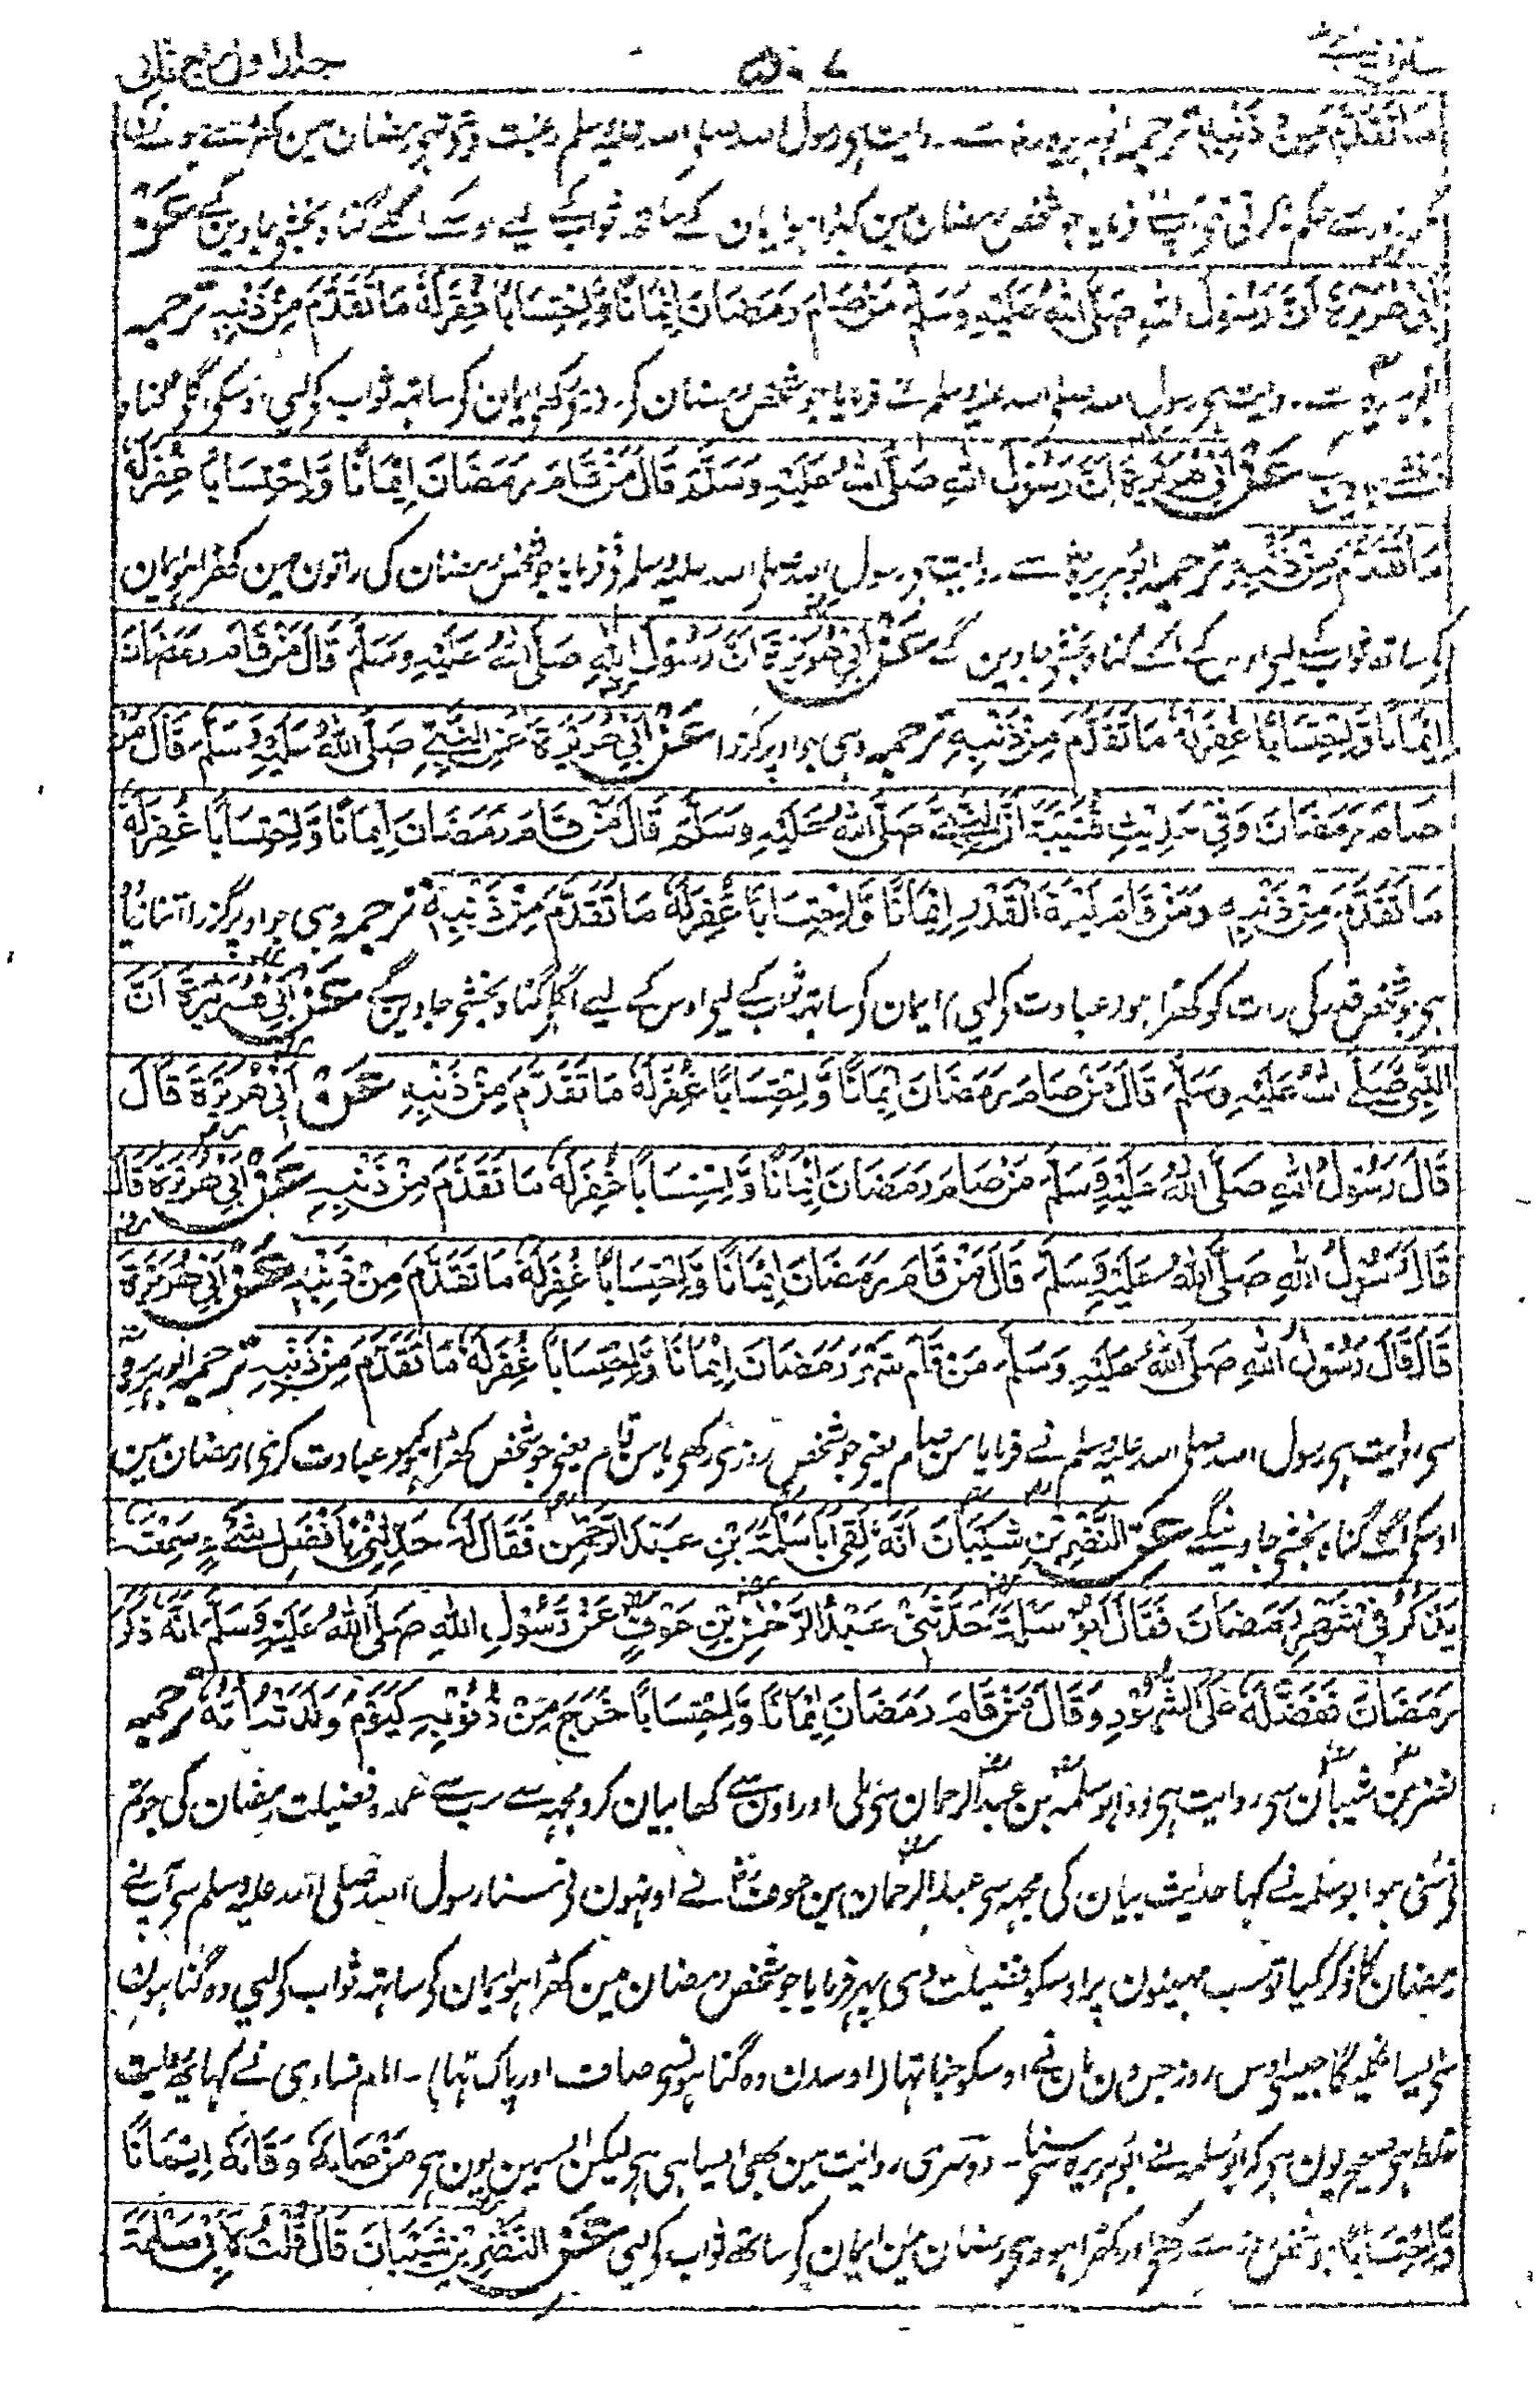 جلد اول ۵۰۷
مَا تَقَدَّمَ مِنْ ذَنْبِهٖ ترجمہ ابوہریرہ سے روایت ہی رسول اللہ صلی اللہ علیہ وسلم رغبت دیتے تھے رمضان مین کھڑے ہونے کی
سے حکم نہ کرتی تھی آپ فرمایا جو شخص رمضان مین کھڑا ہو ایمان کے ساتھ ثواب کے لیے اوسکے اگلے گناہ بخشے جاوین گے عَنْ
اَبِیْ هُرَيْرَةَ اَنَّ رَسُوْلَ اللهِ صَلَّى اللهُ عَلَيْهِ وَسَلَّمَ مَنْ صَامَ رَمَضَانَ اِيْمَانًا وَّاِحْتِسَابًا غُفِرَلَهٗ مَا تَقَدَّمَ مِنْ ذَنْبِهٖ ترجمہ
ابوہریرہ سے روایت ہی رسول اللہ صلی اللہ علیہ وسلم نے فرمایا جو شخص رمضان کے روزے رکھے ایمان کو ساتھہ ثواب کو لیی اوسکی اگلے گناہ
بخشے جاوین گے عَنْ اَبِیْ هُرَيْرَةَ اَنَّ رَسُوْلَ اللهِ صَلَّى اللهُ عَلَيْهِ وَسَلَّمَ قَالَ مَنْ قَامَ رَمَضَانَ اِيْمَانًا وَّاِحْتِسَابًا غُفِرَلَهٗ
مَا تَقَدَّمَ مِنْ ذَنْبِهٖ ترجمہ ابوہریرہ سے روایت ہی رسول اللہ صلی اللہ علیہ وسلم نے فرمایا جو شخص رمضان کی راتون مین کھڑا ہو ایمان
کو ساتھ ثواب کے لیے اوس کے اگلے گناہ بخشے جاوین گے عَنْ اَبِیْ هُرَيْرَةَ اَنَّ رَسُوْلَ اللهِ صَلَّى اللهُ عَلَيْهِ وَسَلَّمَ قَالَ مَنْ قَامَ رَمَضَانَ
اِيْمَانًا وَّاِحْتِسَابًا غُفِرَلَهٗ مَا تَقَدَّمَ مِنْ ذَنْبِهٖ ترجمہ وہی جو اوپر گزرا عَنْ اَبِیْ هُرَيْرَةَ عَنِ النَّبِيِّ صَلَّى اللهُ عَلَيْهِ وَسَلَّمَ قَالَ مَنْ
صَامَ رَمَضَانَ وَفِیْ حَدِيْثِ قُتَيْبَةَ اَنَّ النَّبِيَّ صَلَّى اللهُ عَلَيْهِ وَسَلَّمَ قَالَ مَنْ قَامَ رَمَضَانَ اِيْمَانًا وَّاِحْتِسَابًا غُفِرَلَهٗ
مَا تَقَدَّمَ مِنْ ذَنْبِهٖ وَمَنْ قَامَ لَيْلَةَ الْقَدْرِ اِيْمَانًا وَّاِحْتِسَابًا غُفِرَلَهٗ مَا تَقَدَّمَ مِنْ ذَنْبِهٖ ترجمہ وہی جو اوپر گزرا اتنا زیادہ
ہی جو شخص قدر کی رات کو کھڑا ہو (عبادت کو لیی) ایمان کو ساتھہ ثواب کے لیے اوس کے لیے اگلے گناہ بخشے جاوین گے عَنْ اَبِیْ هُرَيْرَةَ اَنَّ
النَّبِيَّ صَلَّى اللهُ عَلَيْهِ وَسَلَّمَ قَالَ مَنْ صَامَ رَمَضَانَ اِيْمَانًا وَّاِحْتِسَابًا غُفِرَلَهٗ مَا تَقَدَّمَ مِنْ ذَنْبِهٖ عَنْ اَبِیْ هُرَيْرَةَ قَالَ
قَالَ رَسُوْلُ اللهِ صَلَّى اللهُ عَلَيْهِ وَسَلَّمَ مَنْ صَامَ رَمَضَانَ اِيْمَانًا وَّاِحْتِسَابًا غُفِرَلَهٗ مَا تَقَدَّمَ مِنْ ذَنْبِهٖ عَنْ اَبِیْ هُرَيْرَةَ قَالَ
قَالَ رَسُوْلُ اللهِ صَلَّى اللهُ عَلَيْهِ وَسَلَّمَ قَالَ مَنْ قَامَ رَمَضَانَ اِيْمَانًا وَّاِحْتِسَابًا غُفِرَلَهٗ مَا تَقَدَّمَ مِنْ ذَنْبِهٖ عَنْ اَبِیْ هُرَيْرَةَ
قَالَ قَالَ رَسُوْلُ اللهِ صَلَّى اللهُ عَلَيْهِ وَسَلَّمَ مَنْ قَامَ شَهْرَ رَمَضَانَ اِيْمَانًا وَّاِحْتِسَابًا غُفِرَلَهٗ مَا تَقَدَّمَ مِنْ ذَنْبِهٖ ترجمہ ابوہریرہ
سی روایت ہی رسول اللہ صلی اللہ علیہ وسلم نے فرمایا من صام یعنی جو شخص روزی رکھی یا من قام یعنی جو شخص کھڑا ہو (عبادت کرنی) رمضان مین
اوسکی اگلے گناہ بخشے جاوینگے عَنِ النَّضْرِ بْنِ شَيْبَانَ اَنَّهٗ لَقِیَ اَبَا سَلَمَةَ بْنِ عَبْدِ الرَّحْمٰنِ فَقَالَ لَهٗ حَدِّثْنِیْ بِاَفْضَلِ شَیْءٍ سَمِعْتَهٗ
يَذْكُرُ فِیْ شَهْرِ رَمَضَانَ فَقَالَ اَبُوْ سَلَمَةَ حَدَّثَنِیْ عَبْدُ الرَّحْمٰنِ بْنِ عَوْفٍ عَنْ رَّسُوْلِ اللهِ صَلَّى اللهُ عَلَيْهِ وَسَلَّمَ اَنَّهٗ ذَكَرَ
رَمَضَانَ فَفَضَّلَهٗ عَلَى الشُّهُوْرِ وَقَالَ مَنْ قَامَ رَمَضَانَ اِيْمَانًا وَّاِحْتِسَابًا خَرَجَ مِنْ ذُنُوْبِهٖ كَيَوْمِ وَلَدَتْهُ اُمُّهٗ ترجمہ
نضر بن شیبان سی روایت ہی وہ ابو سلمہ بن عبد الرحمان سی ملی اور اون سے کہا بیان کرو مجہہ سے سب سے عمدہ فضیلت رمضان کی جو تم
نی سنی ہو ابو سلمہ نے کہا حدیث بیان کی مجہہ سی عبد الرحمان بن عوف نے اونہون نی سنا رسول اللہ صلی اللہ علیہ وسلم سی آپ نے
رمضان کا ذکر کیا تو سب مہینون پر اوسکو فضیلت دی پہر فرمایا جو شخص رمضان مین کھڑا ہو ایمان کو ساتھہ ثواب کو لیی وہ گناہون
سی ایسا نکلیگا جیسی اوس روز جس دن مان نے اوسکو جنا تہا (اوسدن وہ گناہو نسی صاف اور پاک تہا) ۔ امام نسائی نے کہا یہ روایت
غلط ہی صحیح یون ہی کہ ابو سلمہ نے ابو ہریرہ سی سنا ۔ دوسری روایت مین بھی ایسا ہی ہی لیکن اسمین یون ہی مَنْ صَامَهٗ وَقَامَهٗ اِيْمَانًا
وَّاِحْتِسَابًا جو شخص روزے رکھے اور کھڑا ہووی رمضان مین ایمان کو ساتھ ثواب کو لیی عَنِ النَّضْرِ بْنِ شَيْبَانَ قَالَ قُلْتُ لِاَبِیْ سَلَمَةَ